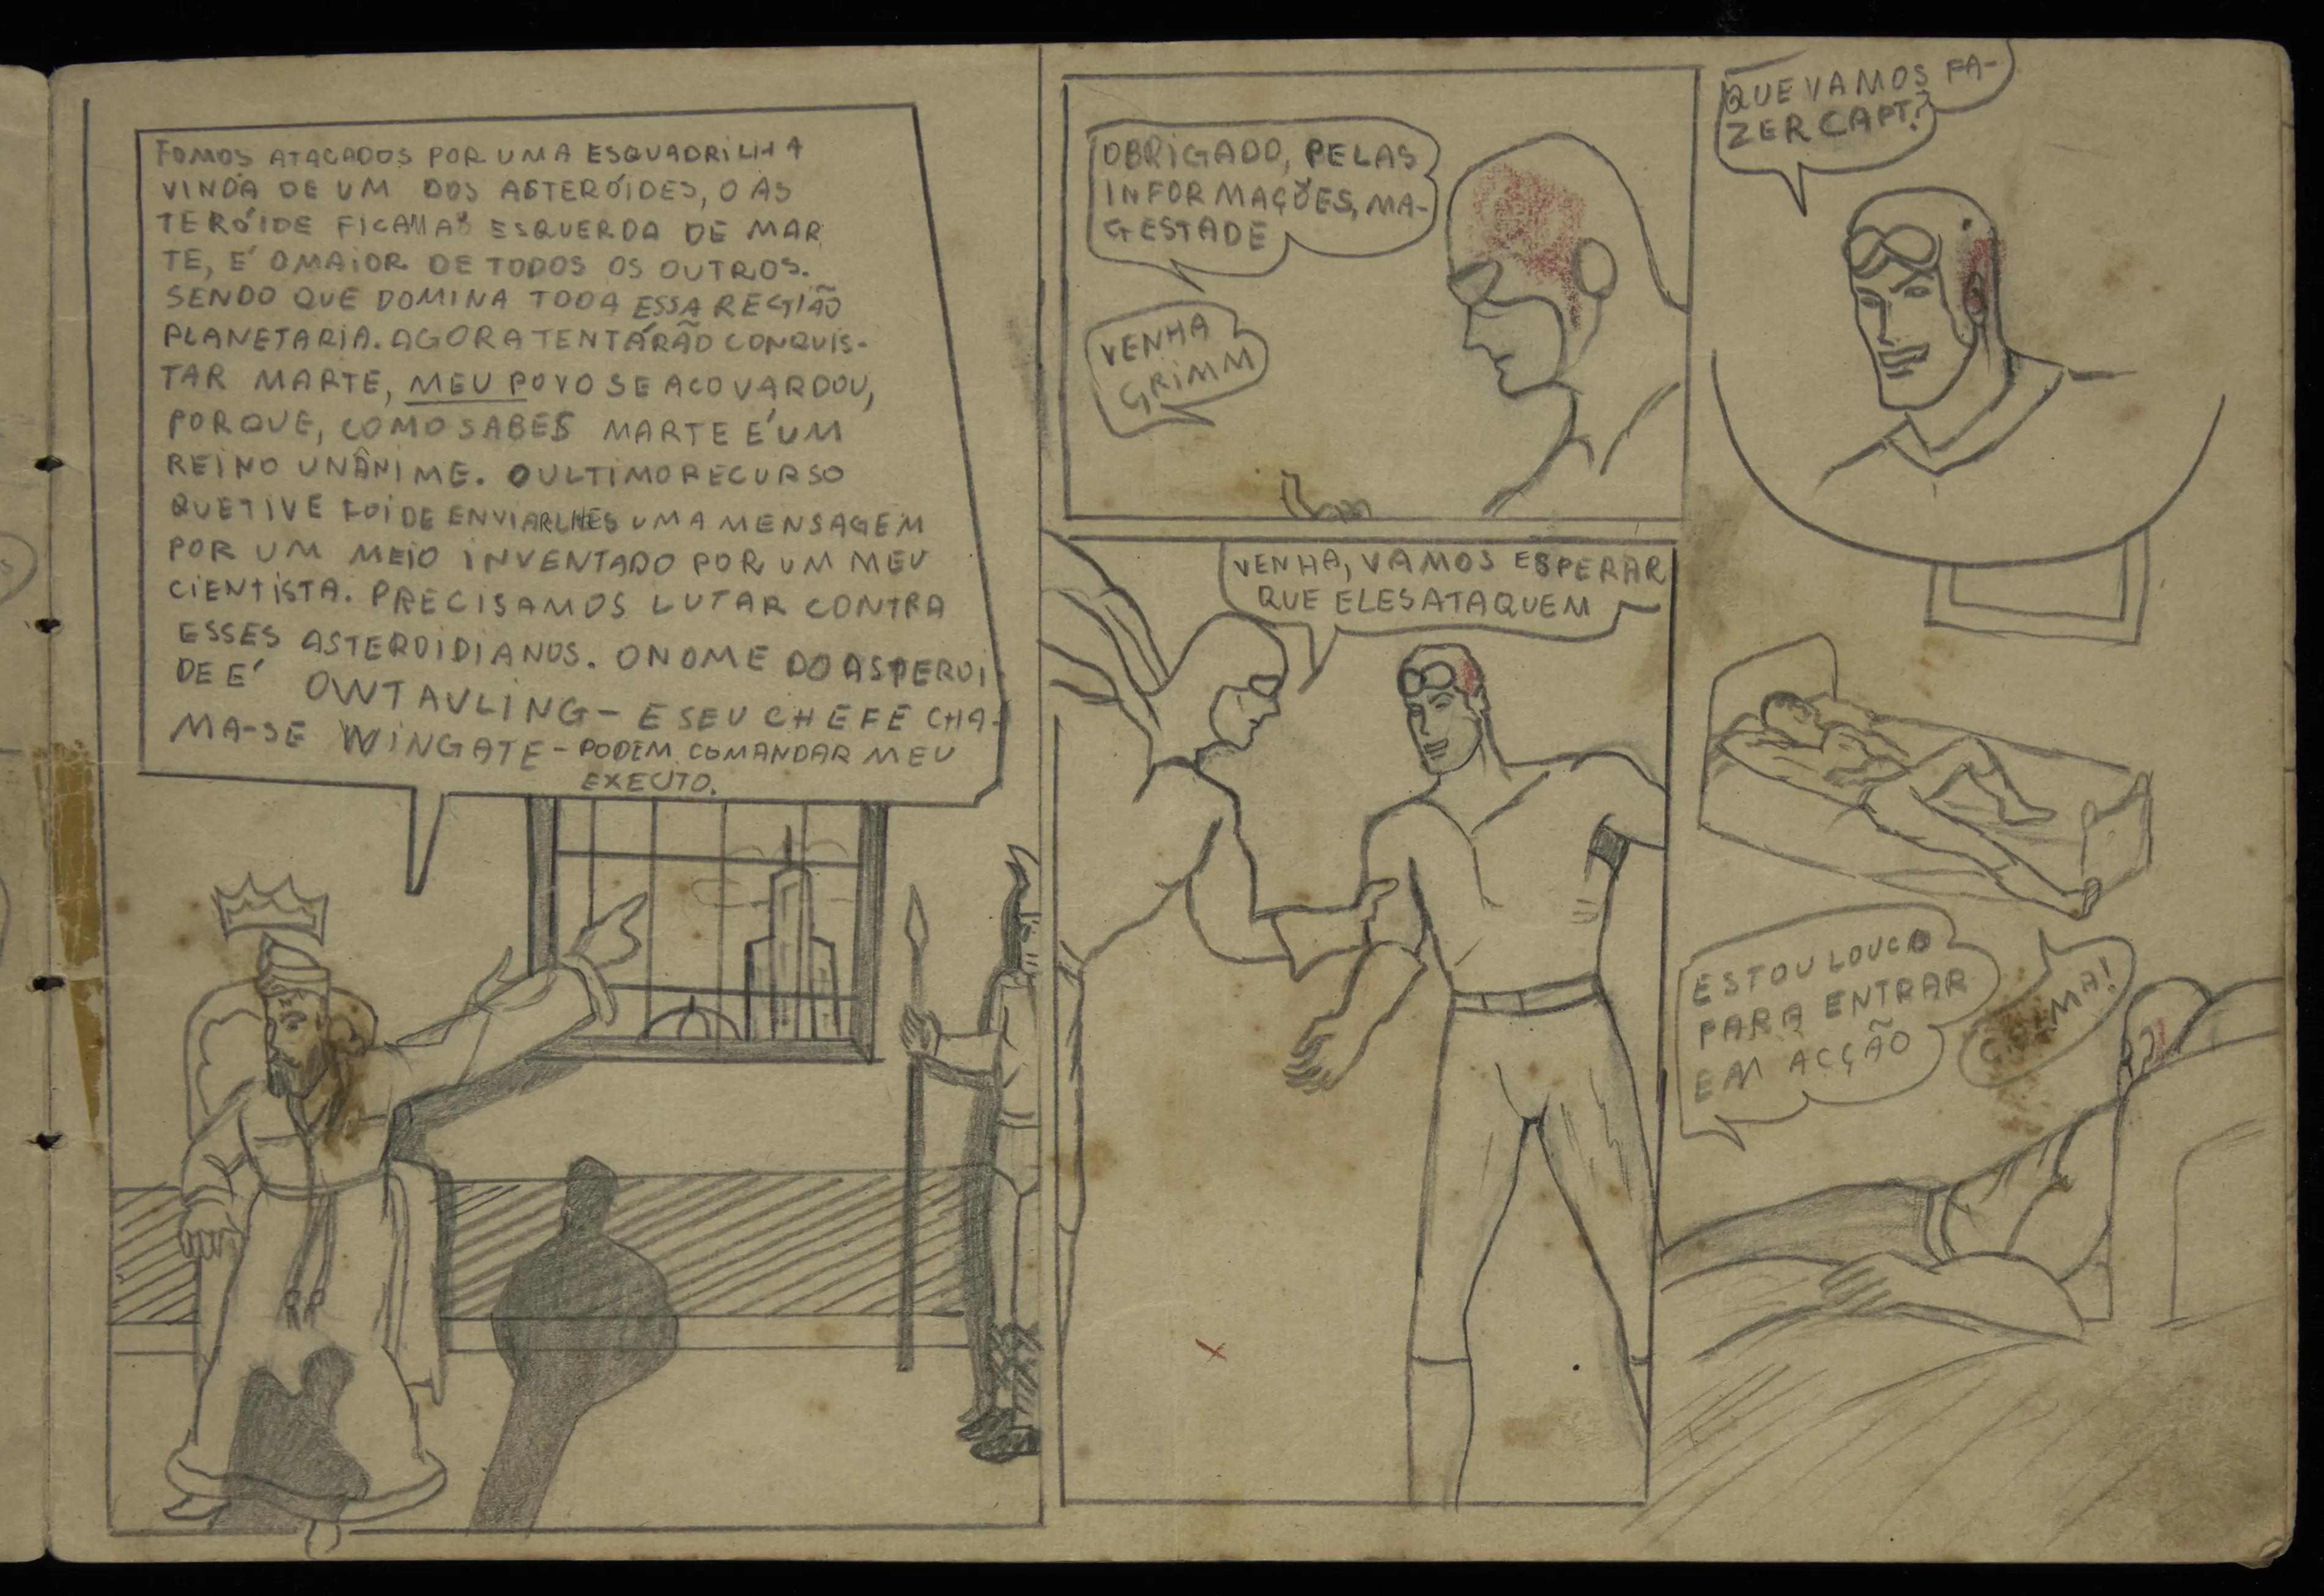 FOMOS ATACADOS POR UMA ESQUADRILHA
VINDA DE UM DOS ASTERÓIDES, O AS
TERÓIDE FICA A ESQUERDA DE MAR
TE, E' O MAIOR DE TODOS OS OUTROS.
SENDO QUE DOMINA TODA ESSA REGIÃO
PLANETARIA. AGORA TENTÁRÃO CONQUIS-
TAR MARTE, MEU POVO SE ACOVARDOU,
PORQUE, COMO SABES MARTE E' UM
REINO UNÂNIME. O ULTIMO RECURSO
QUE TIVE FOI DE ENVIARLHES UMA MENSAGEM
POR UM MEIO INVENTADO POR UM MEU
CIENTISTA. PRECISAMOS LUTAR CONTRA
ESSES ASTEROIDIANOS. O NOME DO ASPEROI
DE E' OWTAULING - E SEU CHEFE CHA-
MA-SE WINGATE - PODEM COMANDAR MEU
EXECITO.
OBRIGADO, PELAS
INFORMAÇÕES, MA-
GESTADE
VENHA
GRIMM
QUE VAMOS FA-
ZER CAPT.?
VENHA, VAMOS ESPERAR
QUE ELES ATAQUEM
ESTOU LOUCO
PARA ENTRAR
EM ACÇÃO
CALMA!